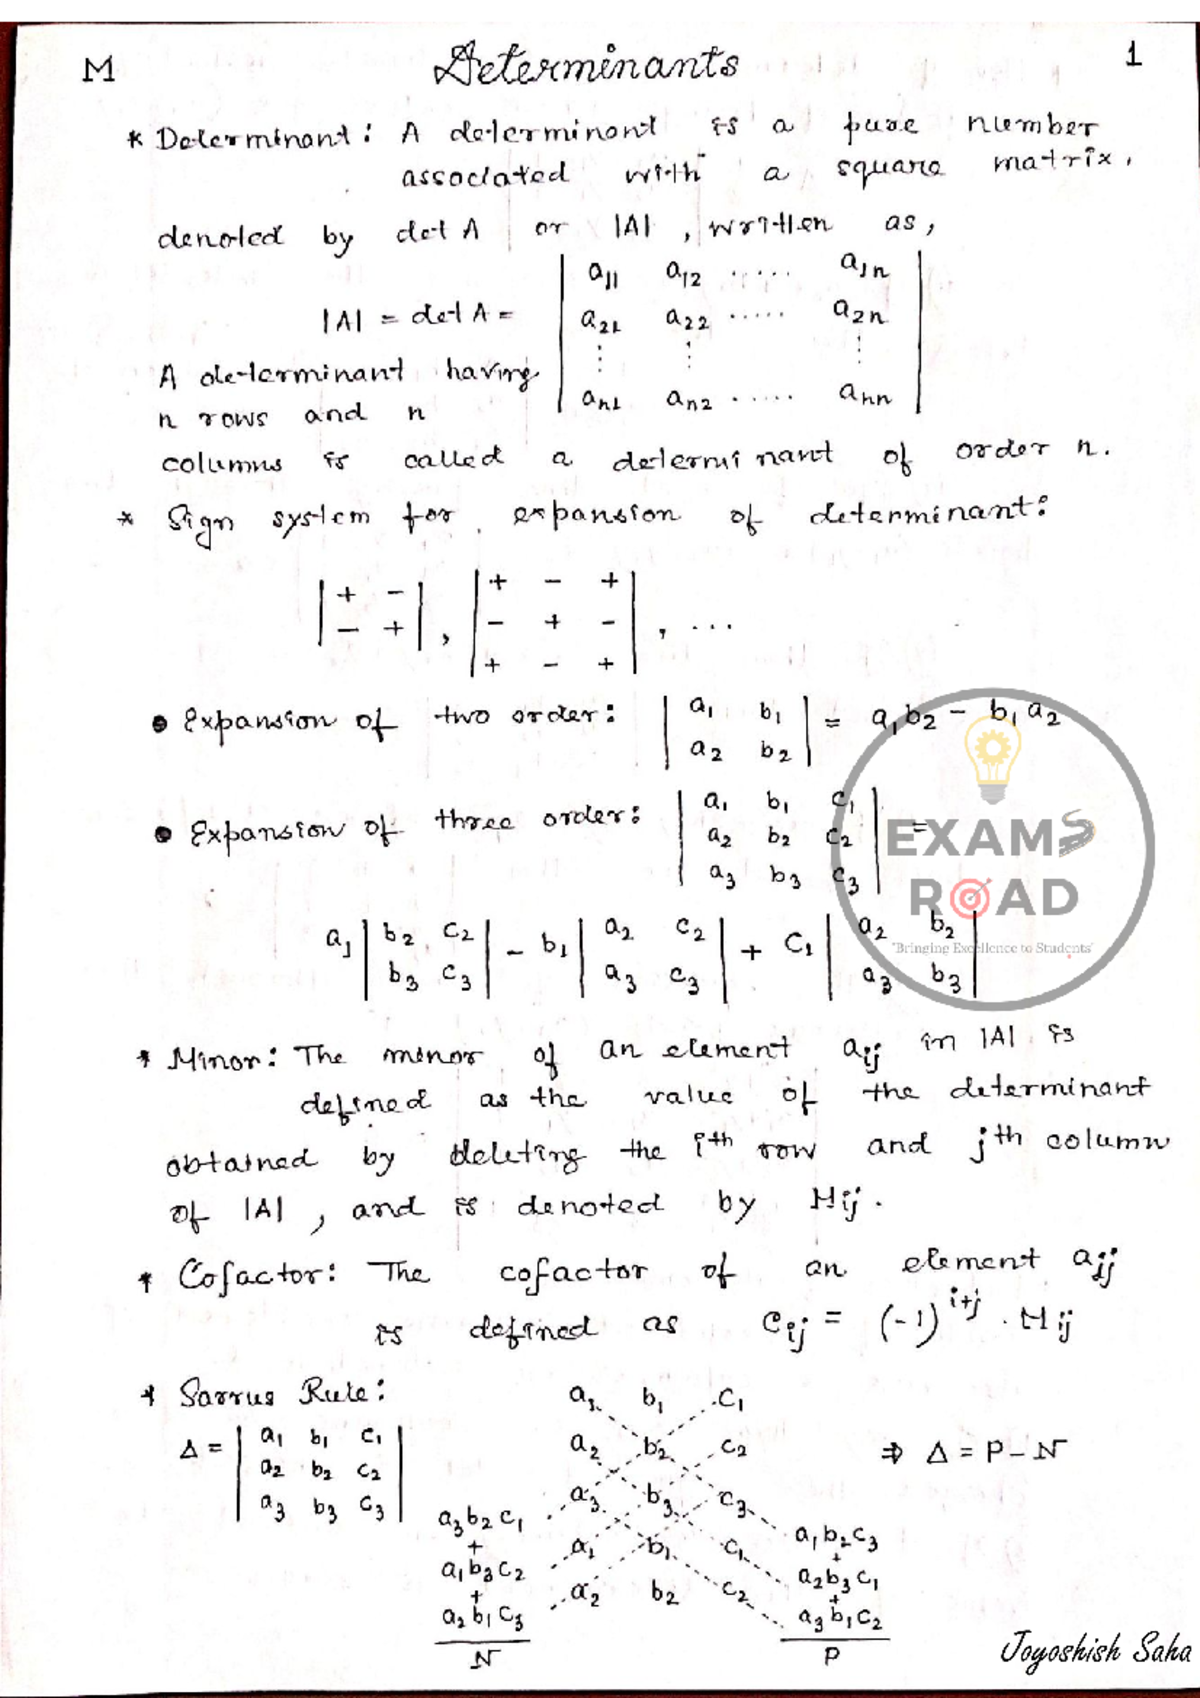 M
Determinants
1
* Determinant: A determinant is a pure number
associated with a square matrix.
denoted by det A or |A|, written as,
|A| = det A = | a11 a12 ..... a1n |
| a21 a22 ..... a2n |
| ⋮ ⋮ ⋮ |
| an1 an2 ..... ann |
A determinant having
n rows and n
columns is called a determinant of order n.
* Sign system for expansion of determinant:
| + - | , | + - + | , ...
| - + | | - + - |
| + - + |
• Expansion of two order: | a1 b1 | = a1b2 - b1a2
| a2 b2 |
• Expansion of three order: | a1 b1 c1 | =
| a2 b2 c2 |
| a3 b3 c3 |
EXAMS
ROAD
"Bringing Excellence to Students"
a1 | b2 c2 | - b1 | a2 c2 | + c1 | a2 b2 |
| b3 c3 | | a3 c3 | | a3 b3 |
* Minor: The minor of an element aij in |A| is
defined as the value of the determinant
obtained by deleting the ith row and jth column
of |A|, and is denoted by Mij.
* Cofactor: The cofactor of an element aij
is defined as Cij = (-1)^i+j . Mij
* Sarrus Rule:
Δ = | a1 b1 c1 |
| a2 b2 c2 |
| a3 b3 c3 |
a1 b1 c1
a2 b2 c2
a3 b3 c3
a1 b1 c1
a2 b2 c2
a3b2c1
+
a1b3c2
+
a2b1c3
N
a1b2c3
+
a2b3c1
+
a3b1c2
P
⇒ Δ = P - N
Joyoshish Saha